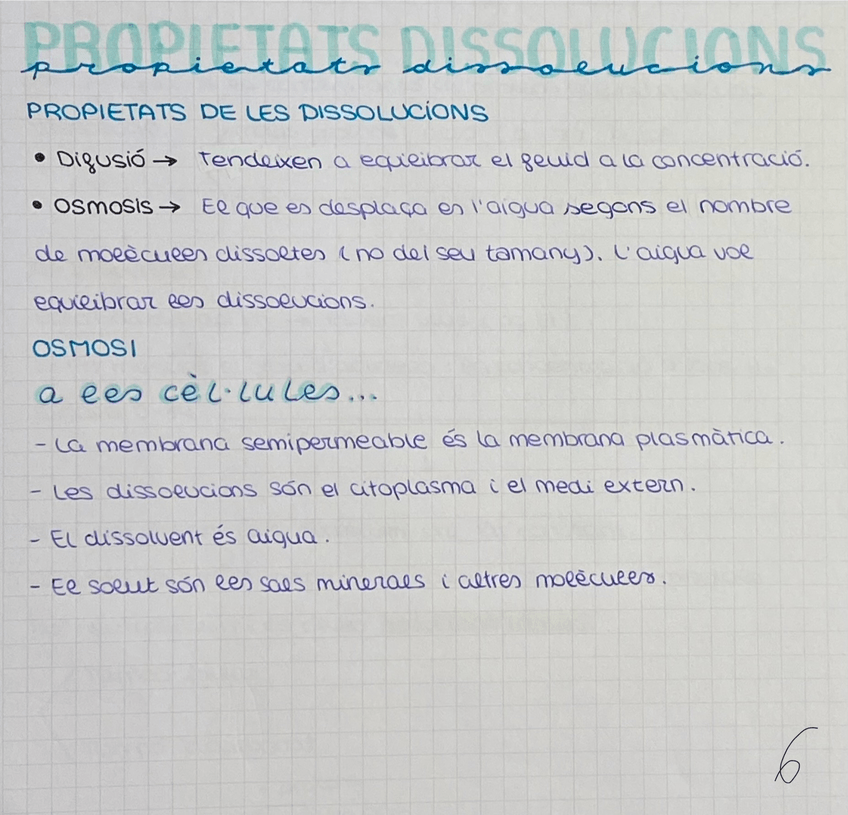 PROPIETATS DISSOLUCIONS
propietats dissolucions
PROPIETATS DE LES DISSOLUCIONS
• Difusió → Tendeixen a equilibrar el fluid a la concentració.
• OSMOSIS → El que es desplaça es l'aigua segons el nombre
de molècules dissoltes (no del seu tamany). L'aigua vol
equilibrar les dissolucions.
OSMOSI
a les cèl·lules...
- La membrana semipermeable és la membrana plasmàtica.
- Les dissolucions són el citoplasma i el medi extern.
- El dissolvent és aigua.
- El solut són les sals minerals i altres molècules.
6